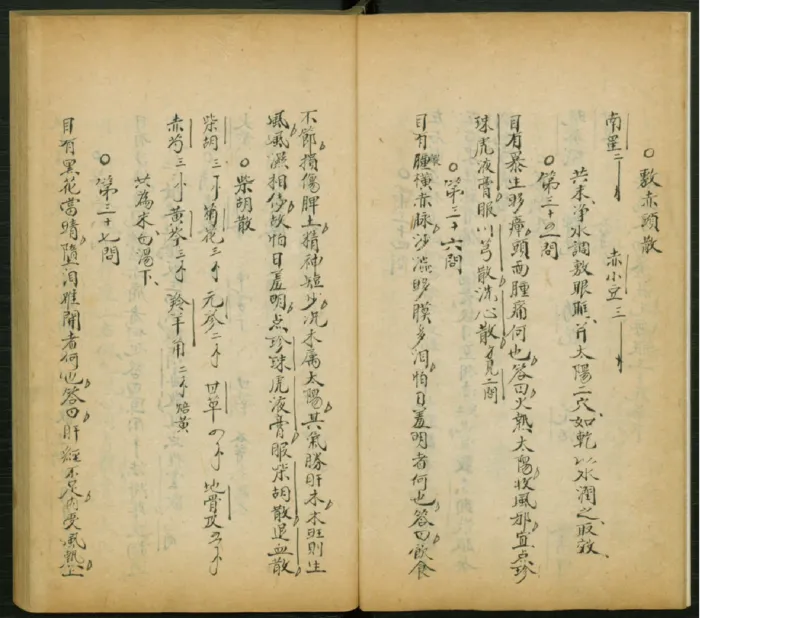 ○敷赤頭散
南星二 赤小豆三
共末、淨水調敷眼眶、并太陽二穴、如乾以水潤之、取效、
○第三十五問
目有暴生眵瘴頭而腫痛何也答曰火熱太陽攻風邪宜点珍
珠虎液膏服川芎散洗心散 見二問
○第三十六問
目有腫橫赤脉沙澁眵膜多泪怕日羞明者何也答曰飲食
不節損傷脾土精神短少况木属太陽其氣勝肝木木旺則生
風風濕相侵故怕日羞明点珍珠虎液膏服柴胡散退血散
○柴胡散
柴胡三 菊花三 元參二 甘草 地骨皮
赤芍三 黄芩三 羚羊角二
共為末白湯下、
○第三十七問
目有黒花當睛墮泪难開者何也答曰肝經不足内受風熱上